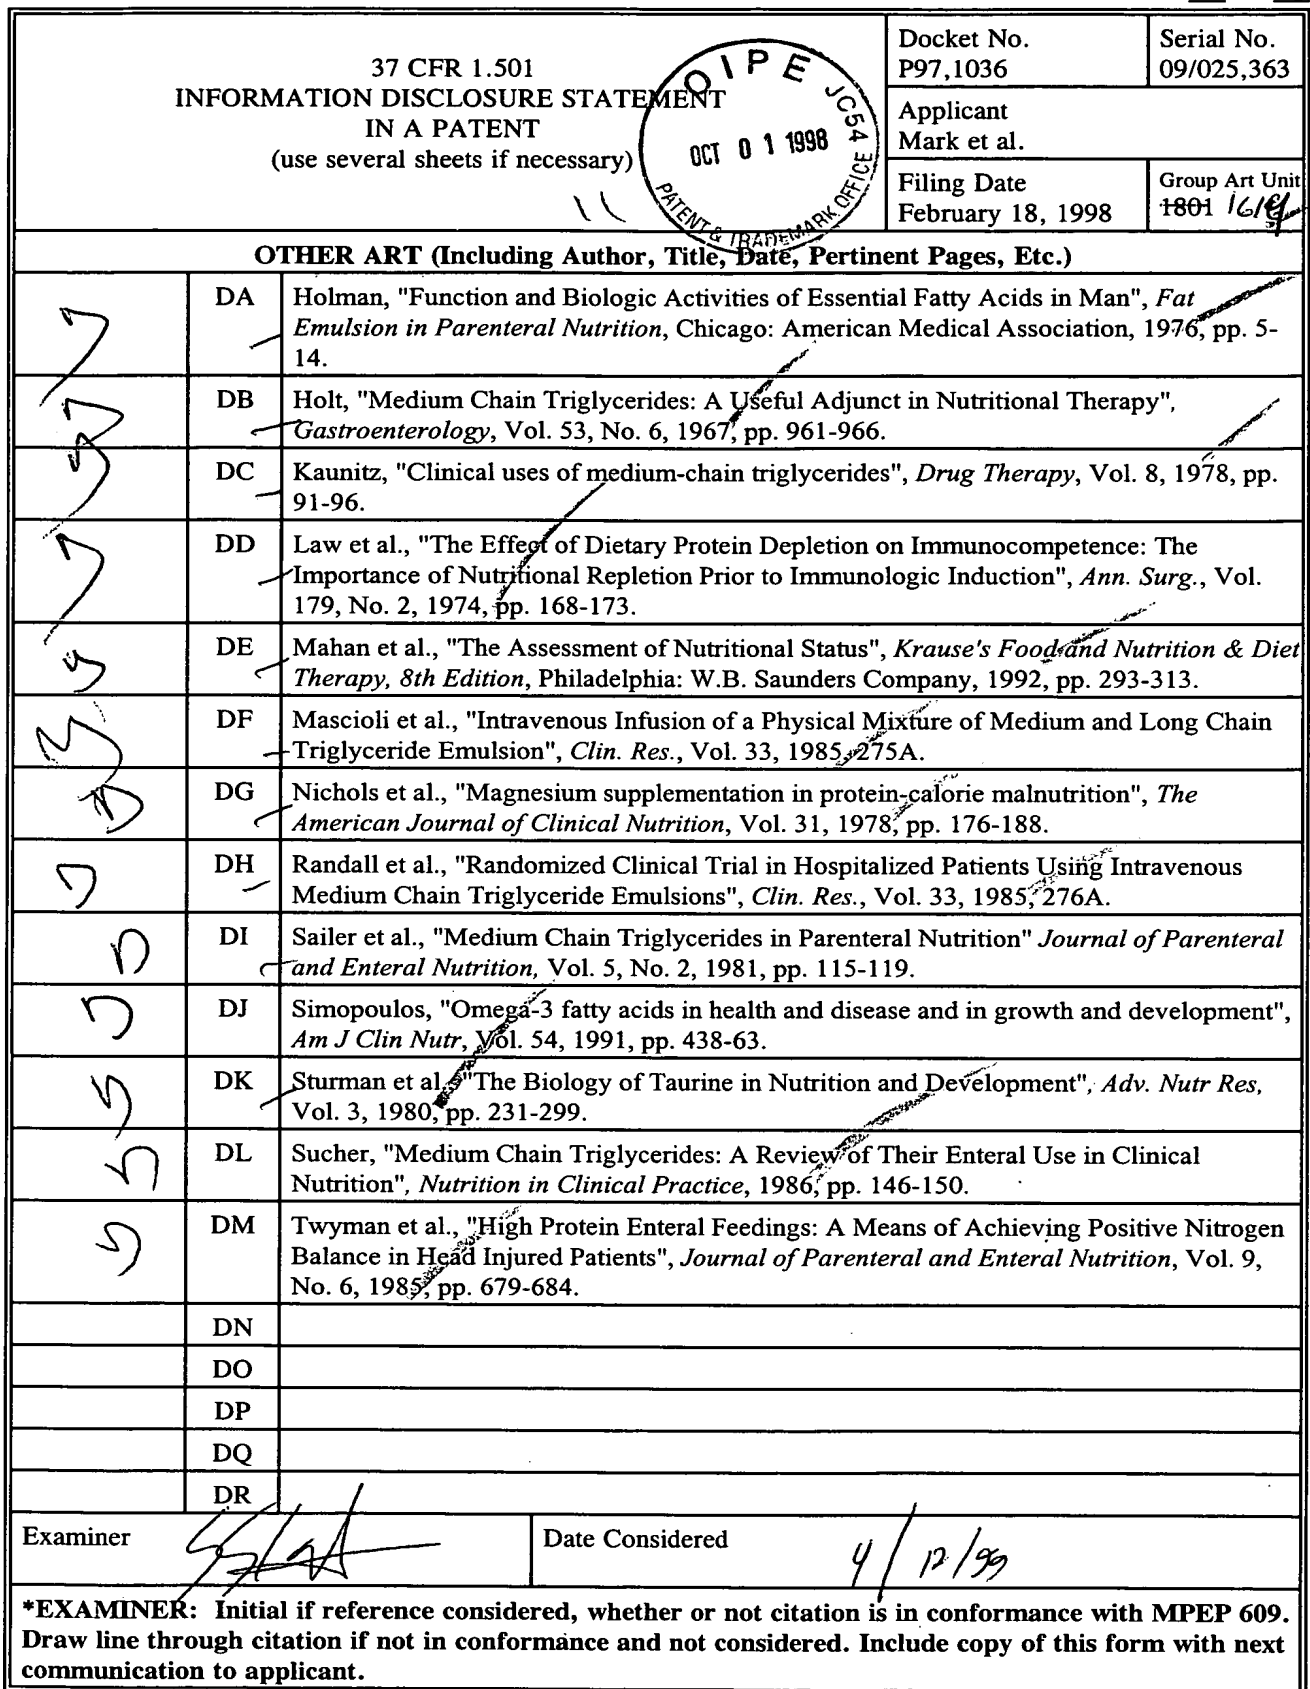 37 CFR 1.501
INFORMATION DISCLOSURE STATEMENT
IN A PATENT
(use several sheets if necessary)
11
OIPE JC54
OCT 0 1 1998
PATENT & TRADEMARK OFFICE
Docket No.
P97,1036
Serial No.
09/025,363
Applicant
Mark et al.
Filing Date
February 18, 1998
Group Art Unit
1801
OTHER ART (Including Author, Title, Date, Pertinent Pages, Etc.)
DA Holman, "Function and Biologic Activities of Essential Fatty Acids in Man", Fat
Emulsion in Parenteral Nutrition, Chicago: American Medical Association, 1976, pp. 5-
14.
DB Holt, "Medium Chain Triglycerides: A Useful Adjunct in Nutritional Therapy",
Gastroenterology, Vol. 53, No. 6, 1967, pp. 961-966.
DC Kaunitz, "Clinical uses of medium-chain triglycerides", Drug Therapy, Vol. 8, 1978, pp.
91-96.
DD Law et al., "The Effect of Dietary Protein Depletion on Immunocompetence: The
Importance of Nutritional Repletion Prior to Immunologic Induction", Ann. Surg., Vol.
179, No. 2, 1974, pp. 168-173.
DE Mahan et al., "The Assessment of Nutritional Status", Krause's Food and Nutrition & Diet
Therapy, 8th Edition, Philadelphia: W.B. Saunders Company, 1992, pp. 293-313.
DF Mascioli et al., "Intravenous Infusion of a Physical Mixture of Medium and Long Chain
Triglyceride Emulsion", Clin. Res., Vol. 33, 1985, 275A.
DG Nichols et al., "Magnesium supplementation in protein-calorie malnutrition", The
American Journal of Clinical Nutrition, Vol. 31, 1978, pp. 176-188.
DH Randall et al., "Randomized Clinical Trial in Hospitalized Patients Using Intravenous
Medium Chain Triglyceride Emulsions", Clin. Res., Vol. 33, 1985, 276A.
DI Sailer et al., "Medium Chain Triglycerides in Parenteral Nutrition" Journal of Parenteral
and Enteral Nutrition, Vol. 5, No. 2, 1981, pp. 115-119.
DJ Simopoulos, "Omega-3 fatty acids in health and disease and in growth and development",
Am J Clin Nutr, Vol. 54, 1991, pp. 438-63.
DK Sturman et al., "The Biology of Taurine in Nutrition and Development", Adv. Nutr Res,
Vol. 3, 1980, pp. 231-299.
DL Sucher, "Medium Chain Triglycerides: A Review of Their Enteral Use in Clinical
Nutrition", Nutrition in Clinical Practice, 1986, pp. 146-150.
DM Twyman et al., "High Protein Enteral Feedings: A Means of Achieving Positive Nitrogen
Balance in Head Injured Patients", Journal of Parenteral and Enteral Nutrition, Vol. 9,
No. 6, 1985, pp. 679-684.
DN
DO
DP
DQ
DR
Examiner
Date Considered
4/12/99
*EXAMINER: Initial if reference considered, whether or not citation is in conformance with MPEP 609.
Draw line through citation if not in conformance and not considered. Include copy of this form with next
communication to applicant.